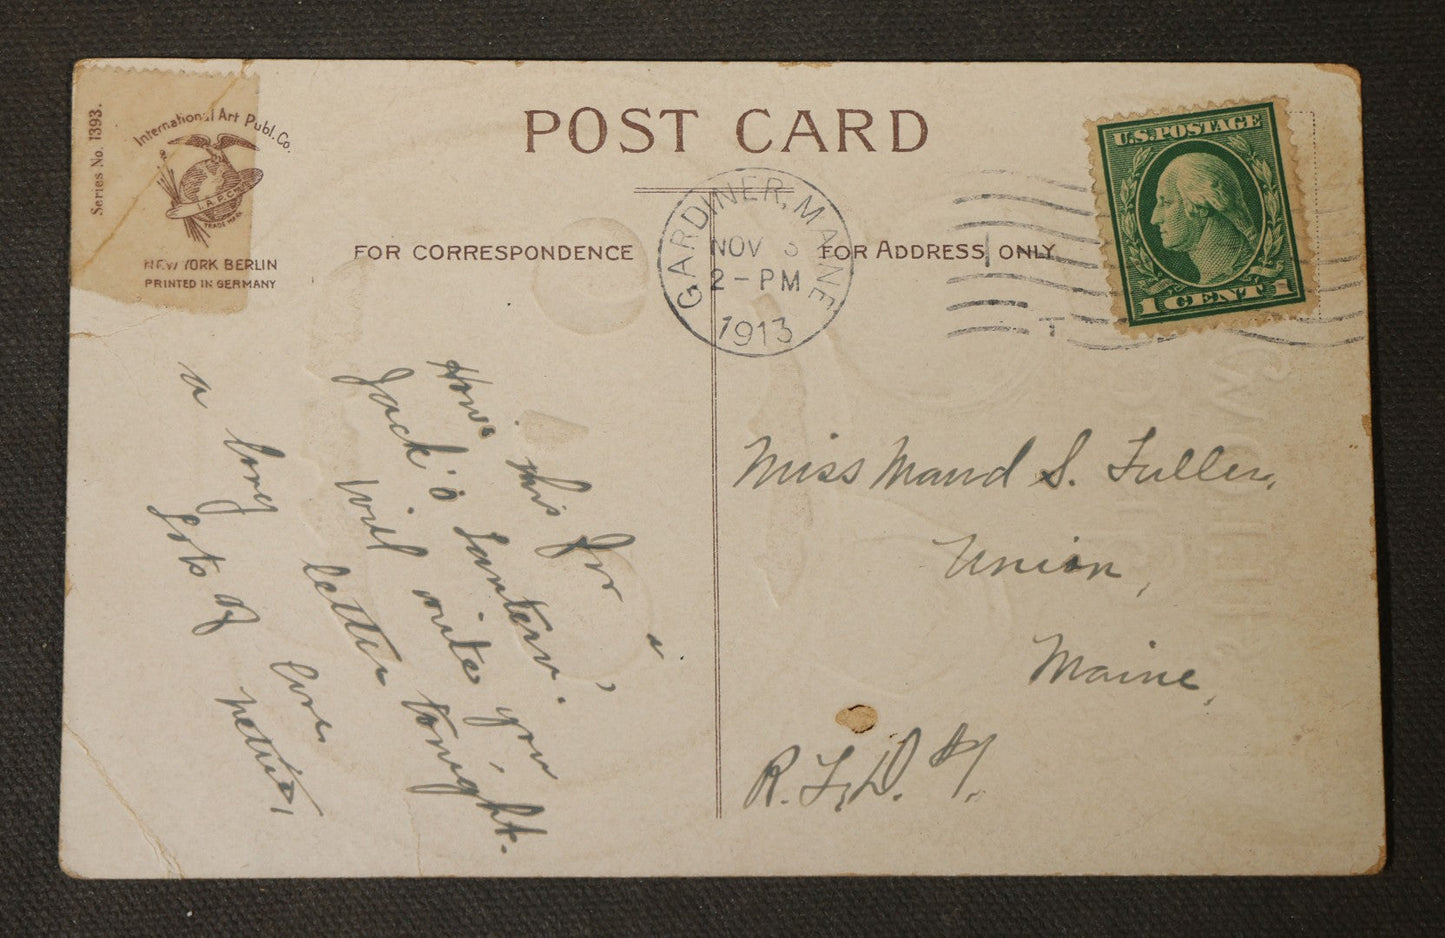 Series No. 1393.
International Art Publ. Co.
I.A.P.C.
TRADE MARK
NEW YORK BERLIN
PRINTED IN GERMANY
POST CARD
FOR CORRESPONDENCE
FOR ADDRESS ONLY
GARDINER, MAINE
NOV
2-PM
1913
U.S. POSTAGE
1 CENT 1
How's this for a
Jack'o Lantern.
Will write you
a long letter tonight.
Lots of love,
Nettie,
Miss Maud S. Fuller,
Union,
Maine,
R.F.D. #1.